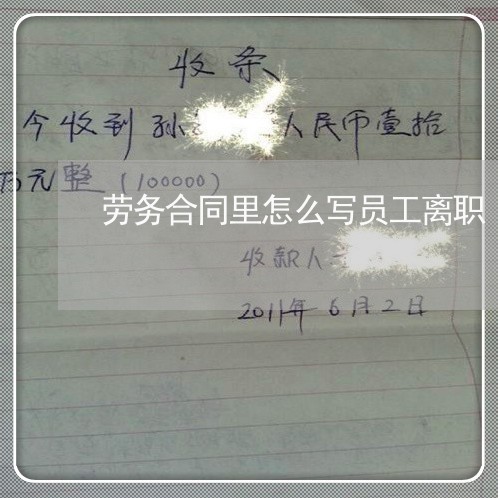 收条
今收到 孙 人民币壹拾
万元整(100000)
劳务合同里怎么写员工离职
收款人
2011年6月2日